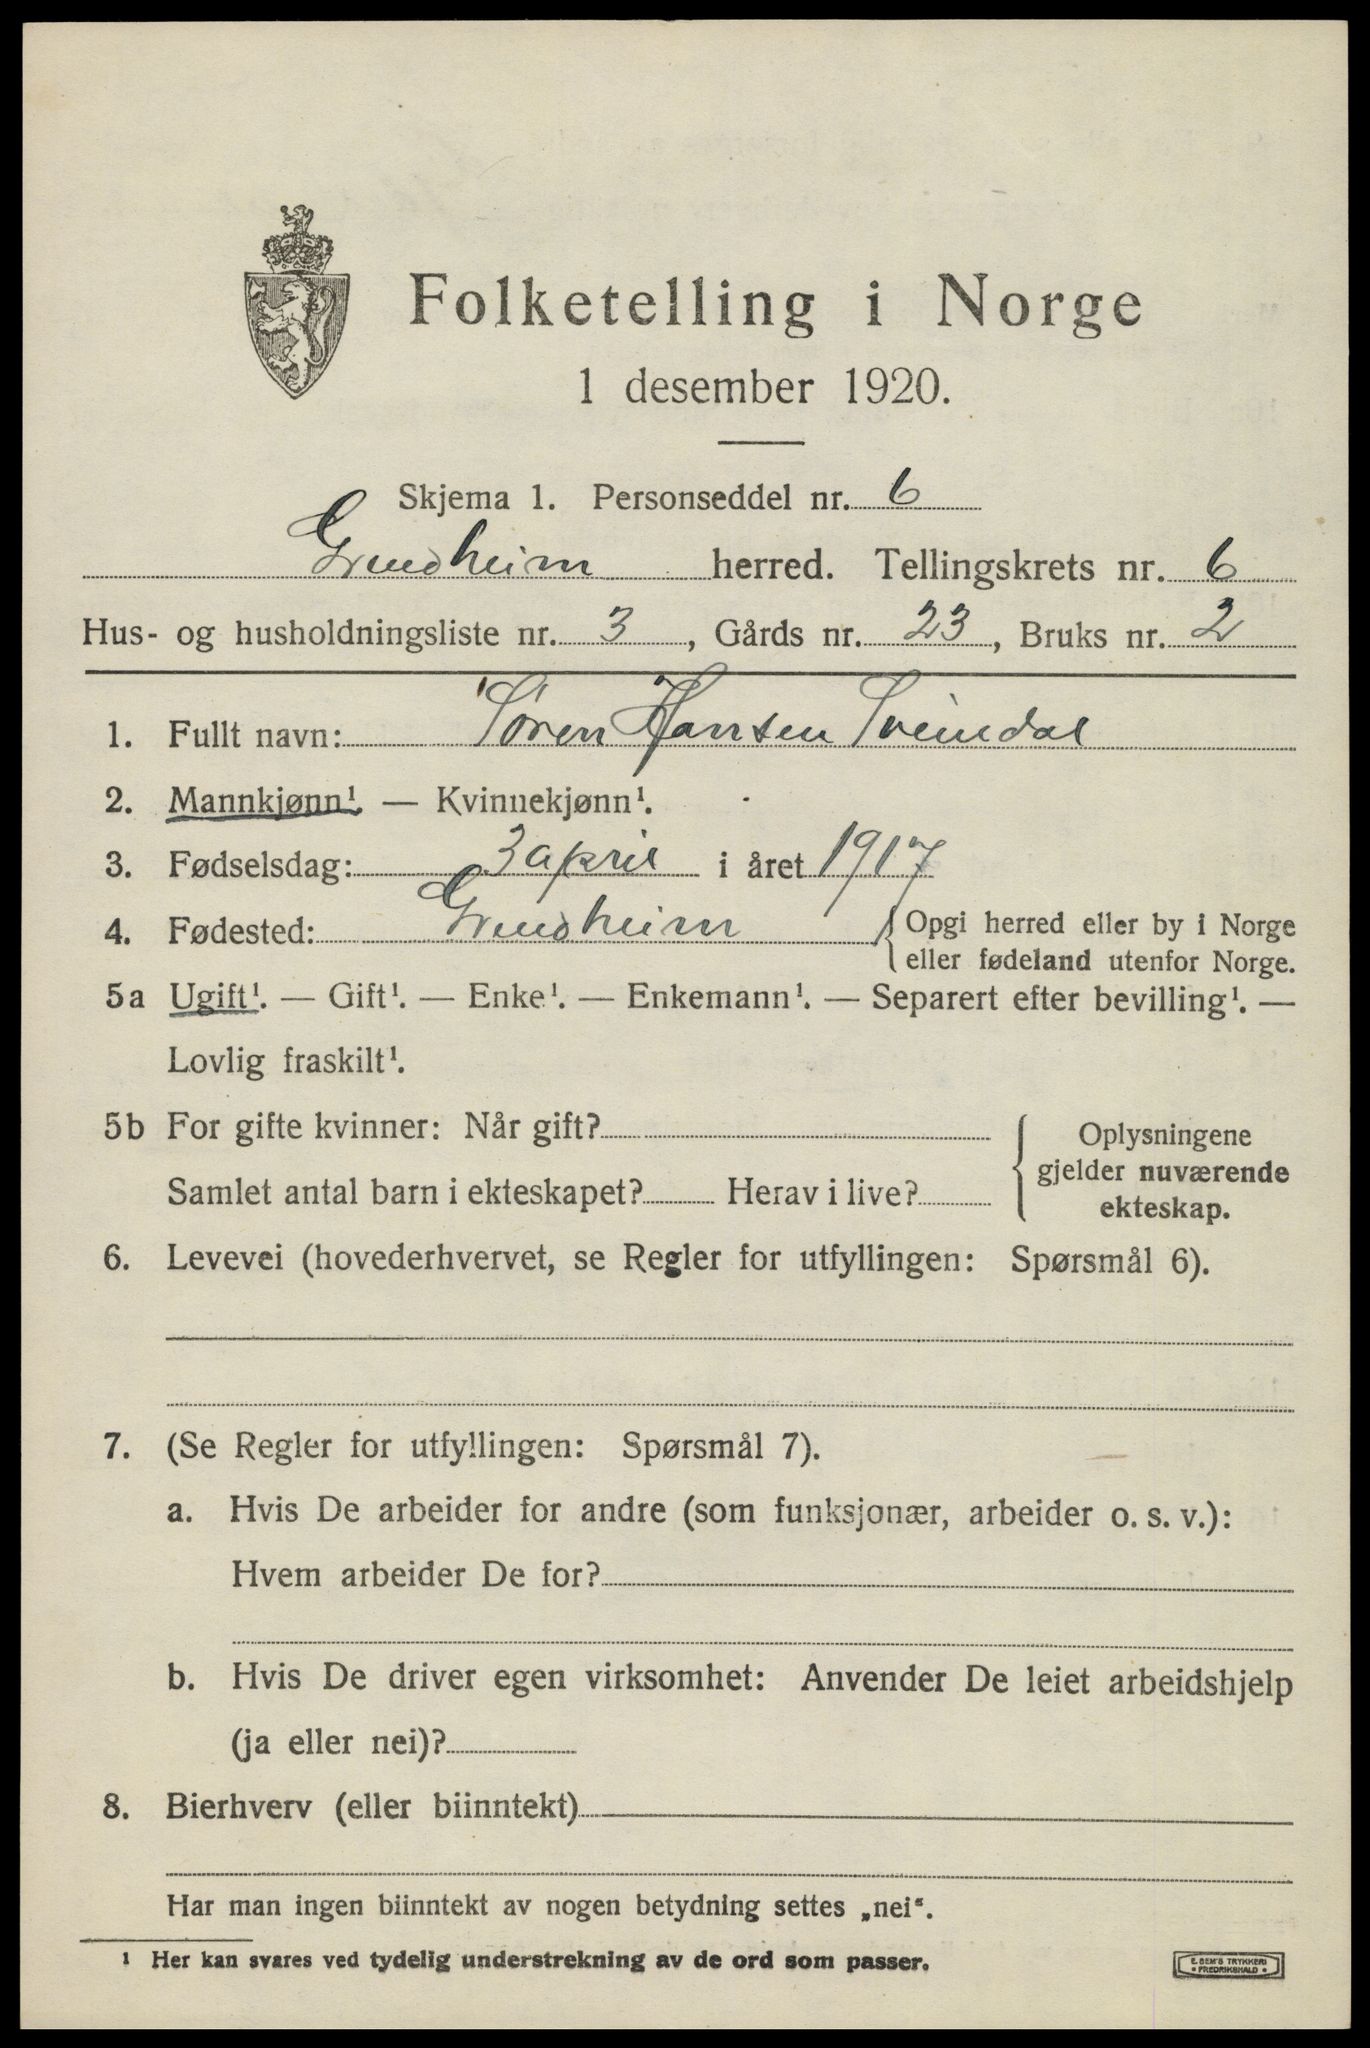 Folketelling i Norge
1 desember 1920.
Skjema 1. Personseddel nr. 6
Grindheim herred. Tellingskrets nr. 6
Hus- og husholdningsliste nr. 3, Gårds nr. 23, Bruks nr. 2
1. Fullt navn: Søren Hansen Sveindal
2. Mannkjønn¹. — Kvinnekjønn¹.
3. Fødselsdag: 3 april i året 1917
4. Fødested: Grindheim { Opgi herred eller by i Norge
eller fødeland utenfor Norge.
5a Ugift¹. — Gift¹. — Enke¹. — Enkemann¹. — Separert efter bevilling¹. —
Lovlig fraskilt¹.
5b For gifte kvinner: Når gift?
Samlet antal barn i ekteskapet? Herav i live?
{ Oplysningene
gjelder nuværende
ekteskap.
6. Levevei (hovederhvervet, se Regler for utfyllingen: Spørsmål 6).
7. (Se Regler for utfyllingen: Spørsmål 7).
a. Hvis De arbeider for andre (som funksjonær, arbeider o. s. v.):
Hvem arbeider De for?
b. Hvis De driver egen virksomhet: Anvender De leiet arbeidshjelp
(ja eller nei)?
8. Bierhverv (eller biinntekt)
Har man ingen biinntekt av nogen betydning settes „nei“.
¹ Her kan svares ved tydelig understrekning av de ord som passer.
E. SEM'S TRYKKERI
FREDRIKSHALD